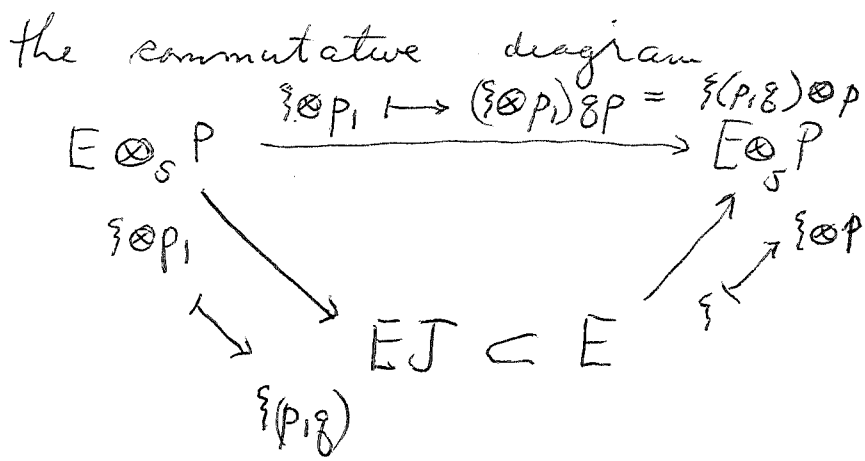 the commutative diagram
ξ⊗p₁ ⟼ (ξ⊗p₁)qp = ξ(p₁q)⊗p
E ⊗ₛ P ⟶ E⊗ₛP
ξ⊗p₁
ξ⊗p
ξ
EJ ⊂ E
ξ(p₁q)